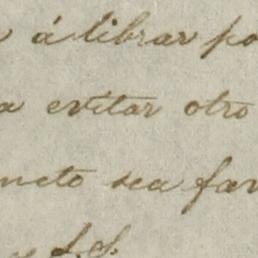 á librar po
a evitar otro
neto sea fav
y S.S.